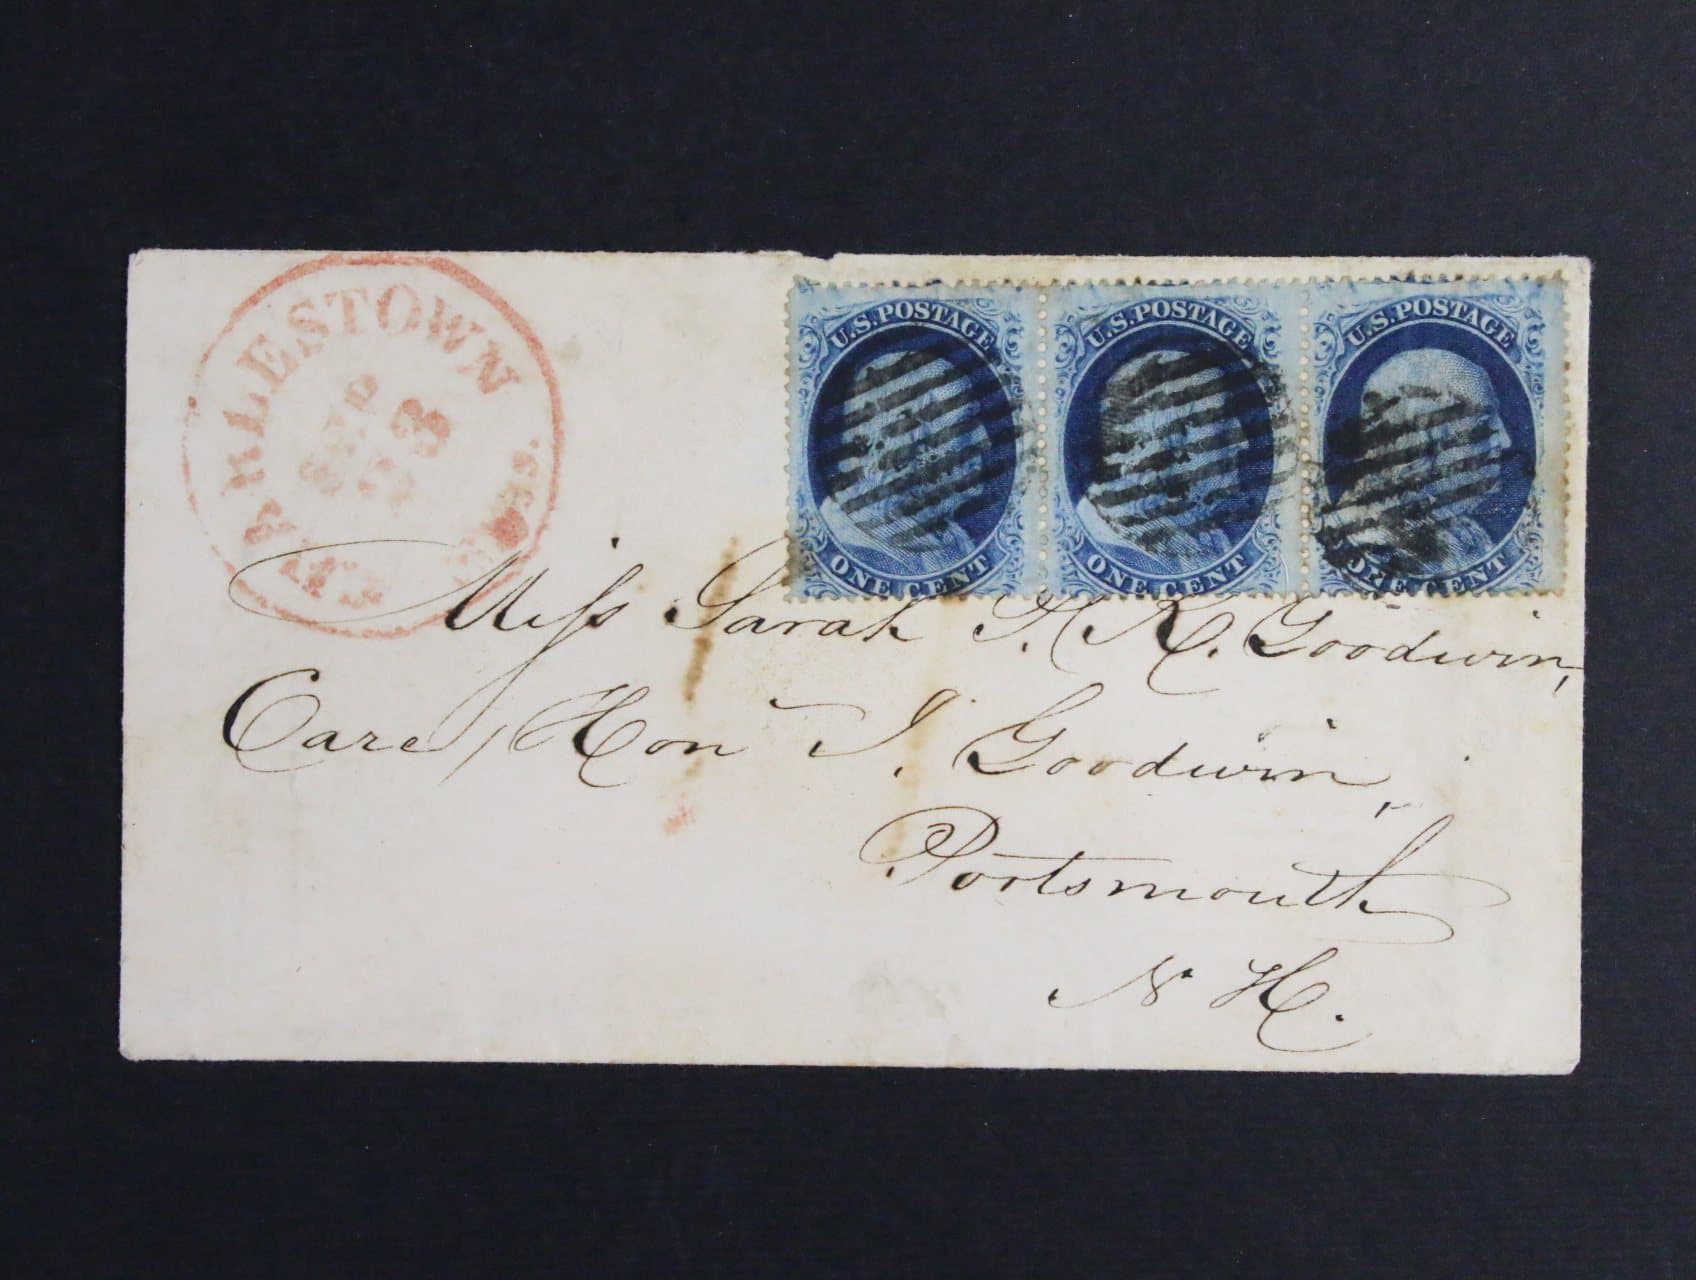 CHARLESTOWN
SEP
23
MASS.
U.S. POSTAGE
ONE CENT
U.S. POSTAGE
ONE CENT
U.S. POSTAGE
ONE CENT
Miss Sarah P. H. Goodwin,
Care, Hon I. Goodwin,
Portsmouth
N H.